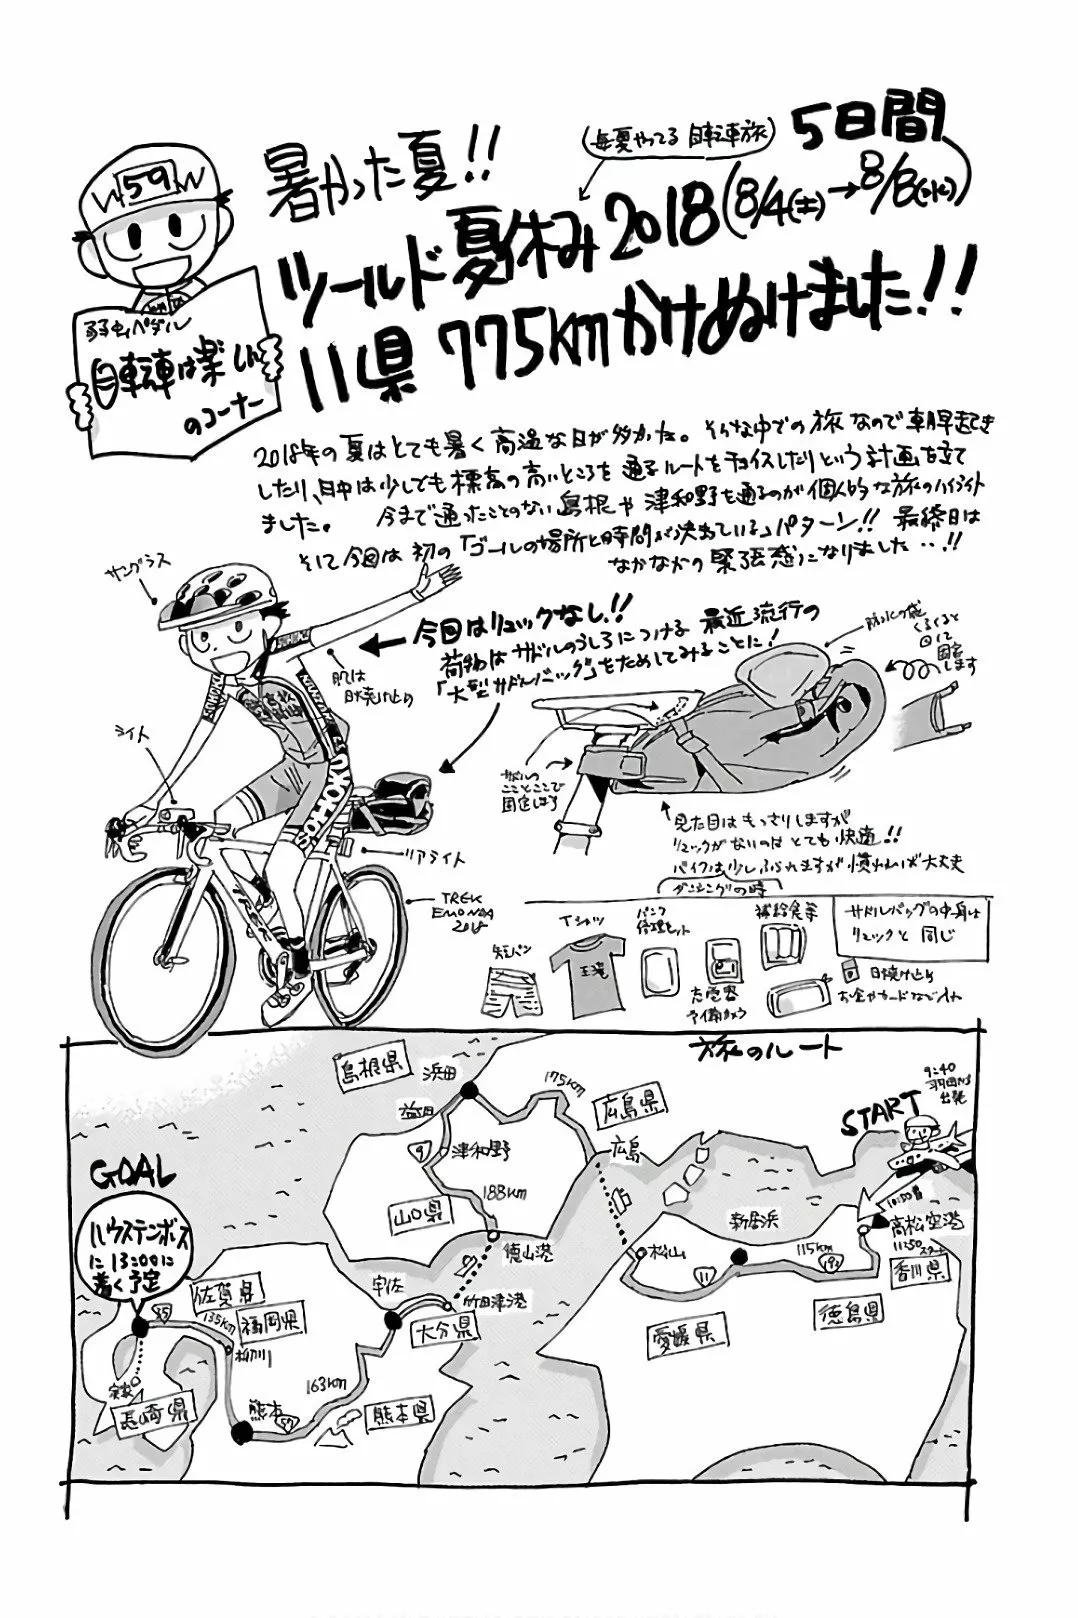 59
弱虫ペダル
自転車は楽しい
のコーナー
暑かった夏!!
(毎夏やってる 自転車旅)
5日間
ツールド夏休み2018(8/4(土)→8/8(水))
11県 775kmかけぬけました!!
2018年の夏はとても暑く高温な日が多かった。そんな中での旅なので朝早起き
したり、日中は少しでも標高の高いところを通るルートをチョイスしたりという計画を立て
ました。 今まで通ったことのない島根や津和野を通るのが個人的な旅のハイライト
そして今回は初の「ゴールの場所と時間が決まっている」パターン!! 最終日は
なかなかの緊張感になりました…!!
サングラス
今回はリュックなし!!
荷物はサドルのうしろにつける最近流行の
「大型サドルバッグ」をためしてみることに!
肌は
日焼け止め
ライト
SOHOKU
リアライト
TREK
EMONDA
2018
防水の袋
くるくると
回して
固定
します
サドルの
こことここで
固定します
見た目はもっさりしますが
リュックがないのはとても快適!!
バイクは少しふられますが慣れれば大丈夫
ダンシングの時
サドルバッグの中身は
リュックと同じ
短パン
Tシャツ
王滝
パンク
修理セット
充電器
予備カメラ
補給食等
日焼け止め
お金やカードなど入れ
旅のルート
START
9:40
羽田から
出発
高松空港
11:50スタート
香川県
徳島県
115km
新居浜
11
愛媛県
松山
広島
広島県
175km
浜田
島根県
益田
9
津和野
山口県
188km
徳山港
竹田津港
宇佐
大分県
163km
57
熊本
熊本県
柳川
135km
福岡県
佐賀県
35
長崎県
GOAL
ハウステンボス
に13:00に
着く予定